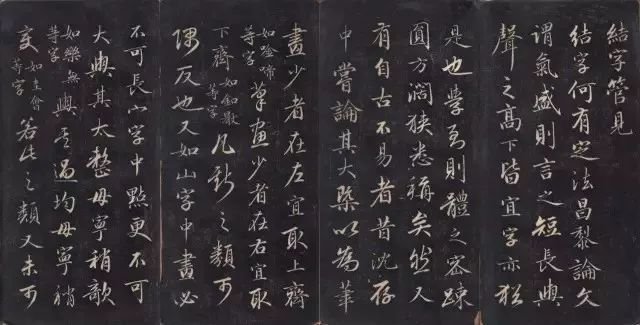 結字管見
結字何有定法昌黎論文
謂氣盛則言之短長與
聲之高下皆宜字亦猶
是也學勇則體之密疎
圓方濶狹悉稱矣然又
有自古不易者昔沈存
中嘗論其大槩以為筆
畫少者在左宜取上齊
如唫啼等字筆畫少者在右宜取
下齊如釦等字凡斯之類可
隅反也又如山字中畫必
不可長心字中點更不可
大與其太整毋寧稍欹
如樂無等字與其過均毋寧稍
變如主等字若此之類又未可